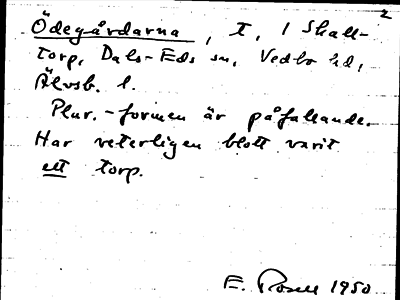 2
Ödegårdarna, T, / Skall-
torp, Dals-Eds sn, Vedbo hd,
Älvsb. l.
Plur.-formen är påfallande.
Har veterligen blott varit
ett torp.
E. Rosell 1950